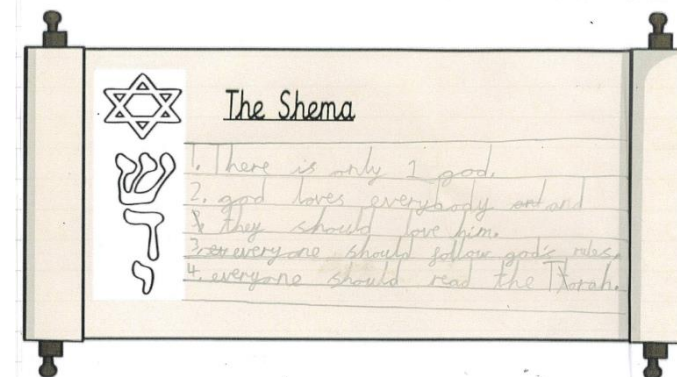 The Shema
ש
ד
י
1. There is only 1 god.
2. god loves everybody and and
they should love him.
3. everyone should follow god's rules.
4. everyone should read the Torah.